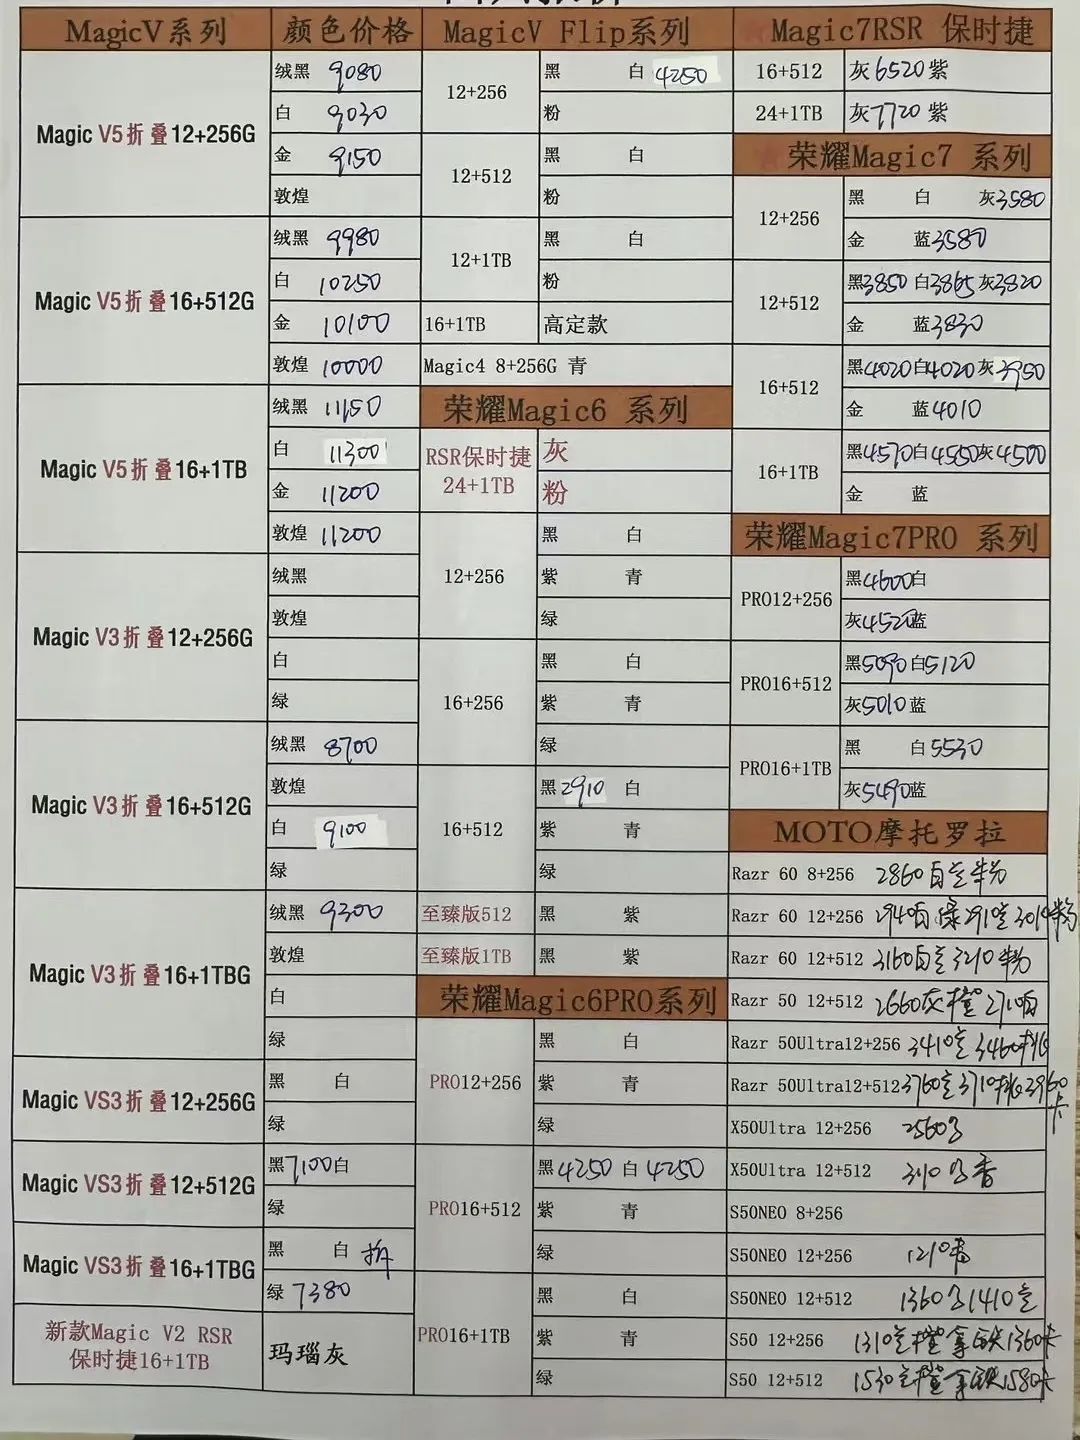 MagicV系列 颜色价格
Magic V5折叠12+256G
绒黑 9080
白 9030
金 9150
敦煌
Magic V5折叠16+512G
绒黑 9980
白 10250
金 10100
敦煌 10000
Magic V5折叠16+1TB
绒黑 11150
白 11300
金 11200
敦煌 11200
Magic V3折叠12+256G
绒黑
敦煌
白
绿
Magic V3折叠16+512G
绒黑 8700
敦煌
白 9100
绿
Magic V3折叠16+1TBG
绒黑 9300
敦煌
白
绿
Magic VS3折叠12+256G
黑 白
绿
Magic VS3折叠12+512G
黑7100白
绿
Magic VS3折叠16+1TBG
黑 白 拆
绿 7380
新款Magic V2 RSR
保时捷16+1TB
玛瑙灰
MagicV Flip系列
12+256
黑 白 4250
粉
12+512
黑 白
粉
12+1TB
黑 白
粉
16+1TB 高定款
Magic4 8+256G 青
荣耀Magic6 系列
RSR保时捷
24+1TB
灰
粉
12+256
黑 白
紫 青
绿
16+256
黑 白
紫 青
绿
16+512
黑2910 白
紫 青
绿
至臻版512 黑 紫
至臻版1TB 黑 紫
荣耀Magic6PRO系列
PRO12+256
黑 白
紫 青
绿
PRO16+512
黑4250 白4250
紫 青
绿
PRO16+1TB
黑 白
紫 青
绿
Magic7RSR 保时捷
16+512 灰6520紫
24+1TB 灰7720紫
荣耀Magic7 系列
12+256
黑 白 灰3580
金 蓝3580
12+512
黑3850白3865灰3820
金 蓝3830
16+512
黑4020白4020灰3950
金 蓝4010
16+1TB
黑4570白4550灰4500
金 蓝
荣耀Magic7PRO 系列
PRO12+256
黑4600白
灰4520蓝
PRO16+512
黑5090白5120
灰5010蓝
PRO16+1TB
黑 白5530
灰5490蓝
MOTO摩托罗拉
Razr 60 8+256 2860 粉
Razr 60 12+256 2940 绿2910 3010粉
Razr 60 12+512 3160 3210粉
Razr 50 12+512 2660灰橙2710
Razr 50Ultra12+256 3410 3460
Razr 50Ultra12+512 3760 3710 3960
X50Ultra 12+256 2560
X50Ultra 12+512 香
S50NEO 8+256
S50NEO 12+256 1210
S50NEO 12+512 1360 1410
S50 12+256 1310 橙拿铁1360
S50 12+512 1530 橙拿铁1580